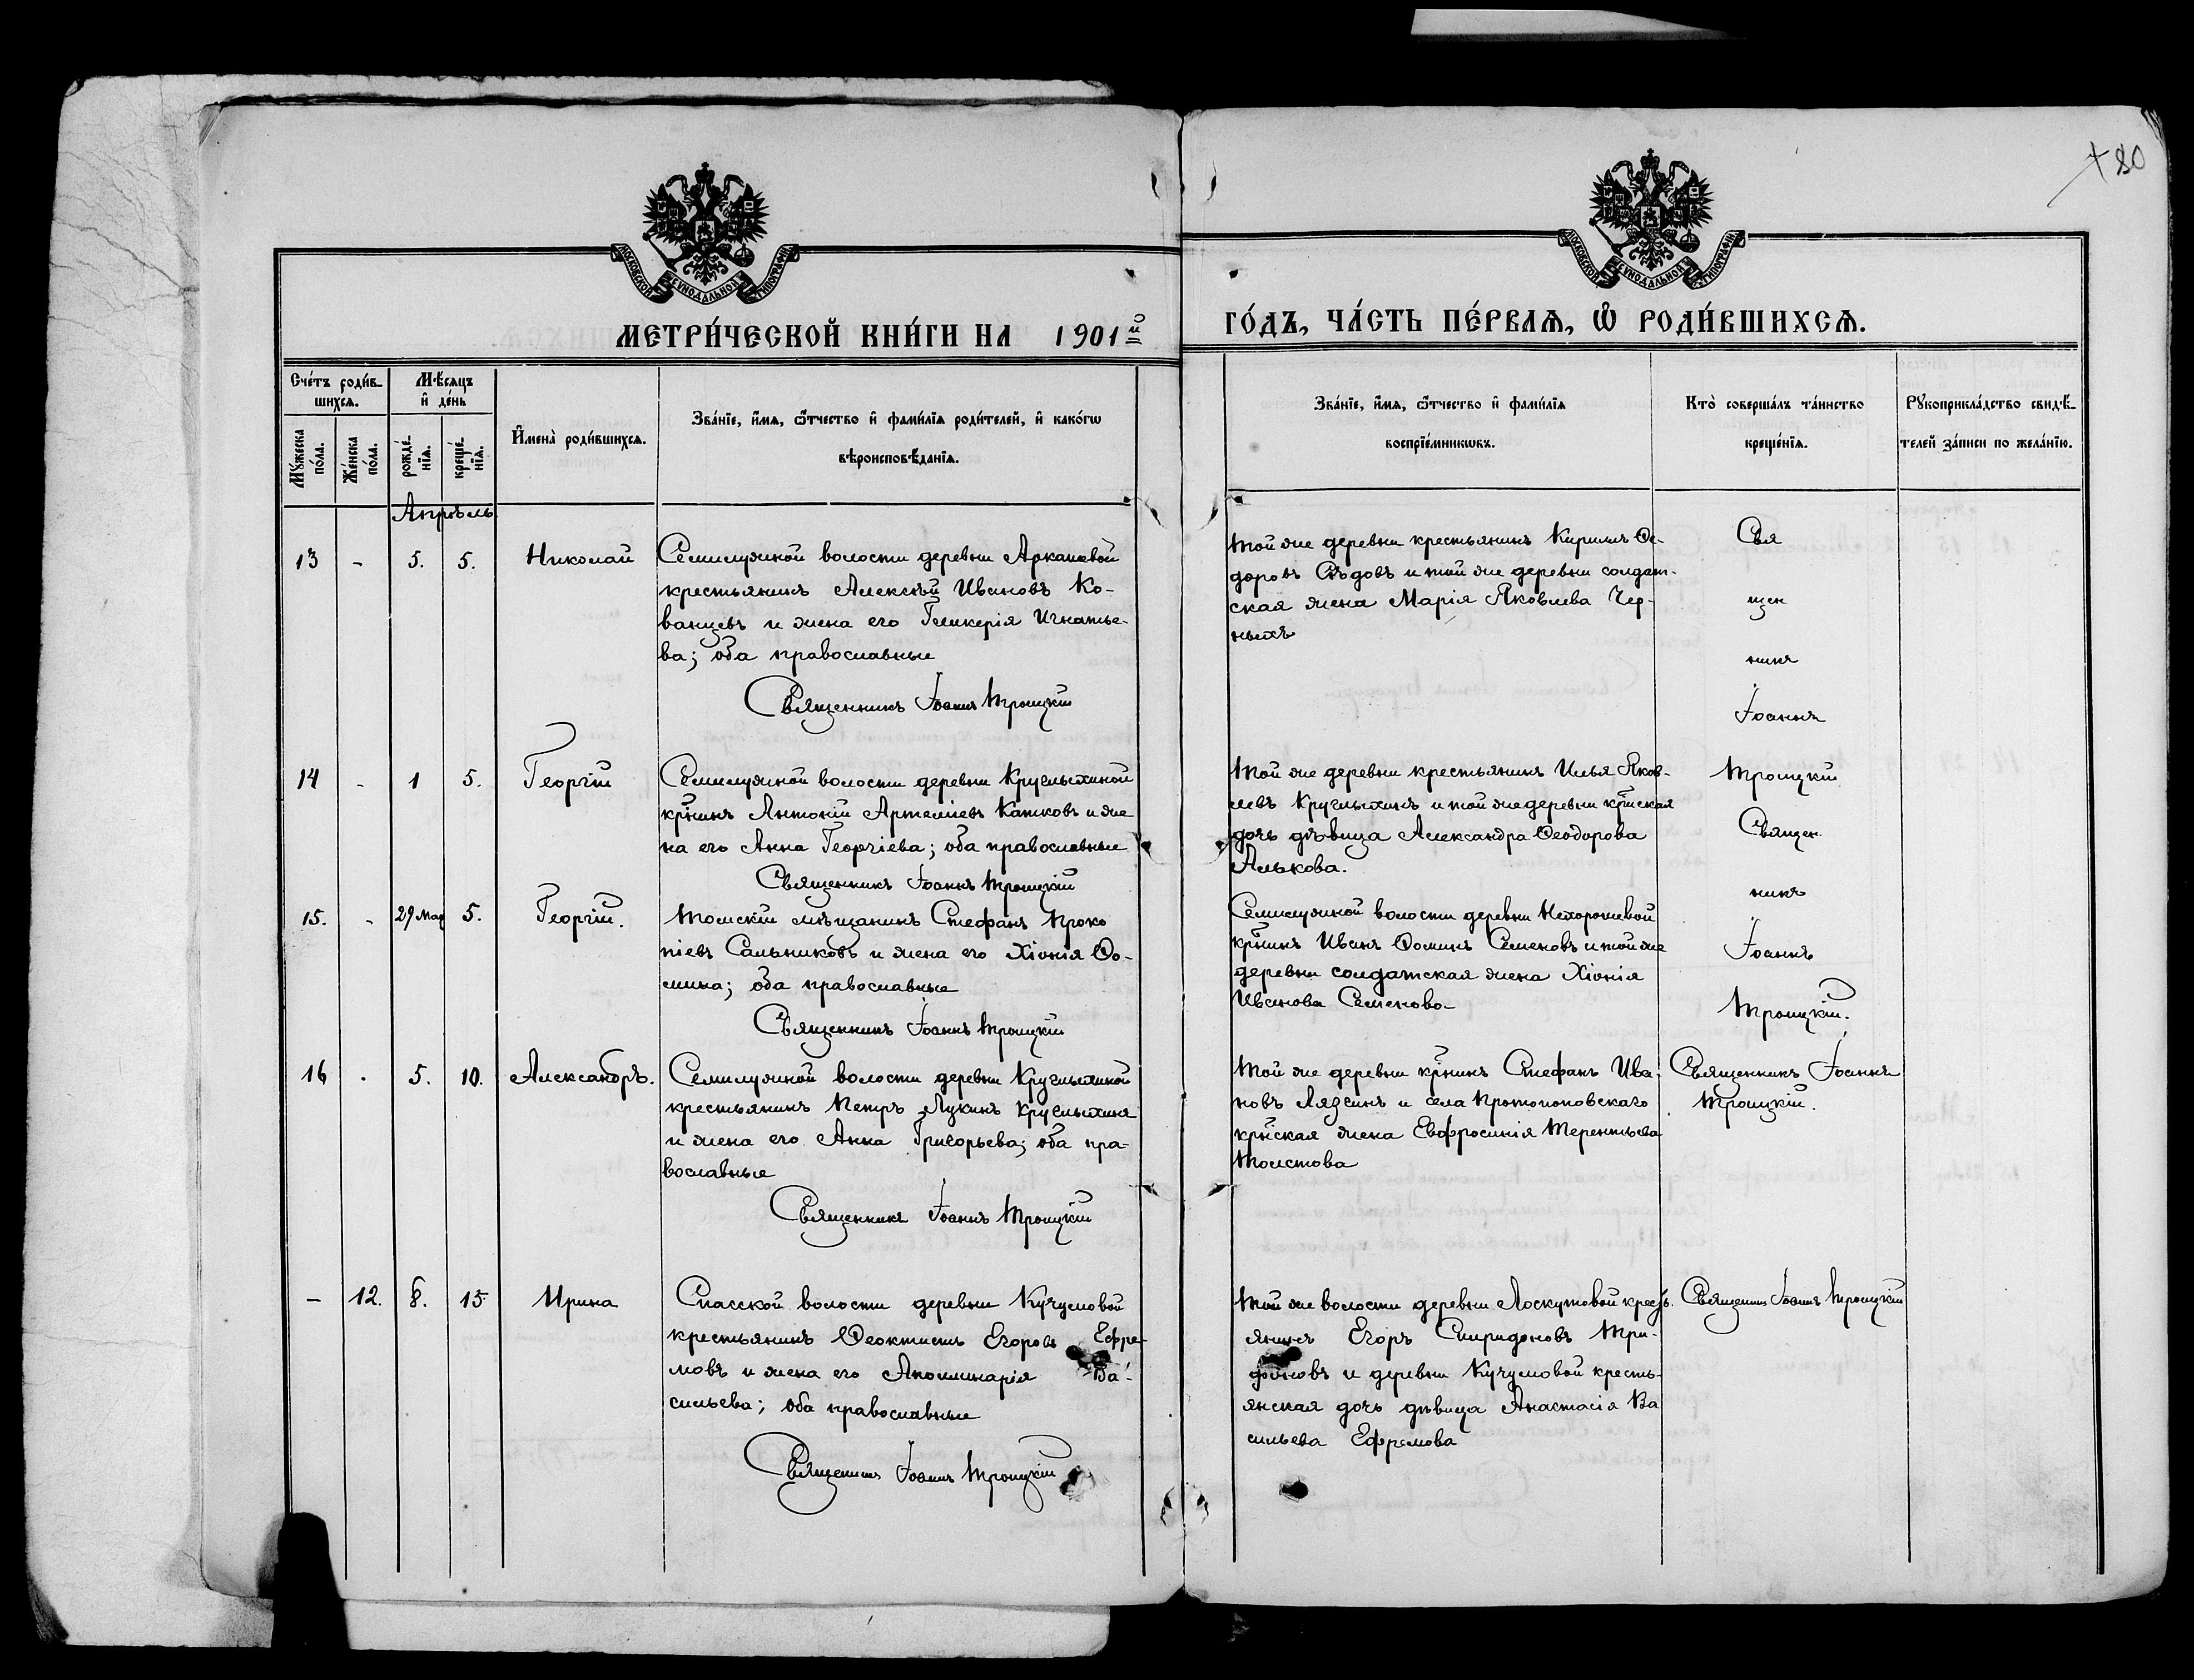 180
МОСКОВСКОЙ СУНОДАЛЬНОЙ ТИПОГРАФІИ
МОСКОВСКОЙ СУНОДАЛЬНОЙ ТИПОГРАФІИ
МЕТРИ́ЧЕСКОЙ КНИ́ГИ НА 1901й
ГО́ДЪ, ЧА́СТЬ ПЕ́РВАѦ, Ѽ РОДИ́ВШИХСѦ.
Сче́тъ роди́в-
шихсѧ.
Мѣ́сѧцъ
и҆ де́нь
Мꙋ́жеска
по́ла.
Же́нска
по́ла.
рожде́-
нїѧ.
креще́-
нїѧ.
И҆мена̀ роди́вшихсѧ.
Зва́нїе, и҆́мѧ, ѻ҆́тчество и҆ фами́лїѧ роди́телей, и҆ како́гѡ
вѣроисповѣ́данїѧ.
Зва́нїе, и҆́мѧ, ѻ҆́тчество и҆ фами́лїѧ
воспрїе́мникѡвъ.
Кто̀ соверша́лъ та́инство
креще́нїѧ.
Рꙋкоприкла́дство свидѣ́-
телей за́писи по жела́нїю.
Апрѣль
13 - 5. 5. Николай
Семилужной волости деревни Аркашевой
крестьянинъ Алексѣй Ивановъ Ко-
ванцевъ и жена его Гликерія Игнатье-
ва; оба православные
Священникъ Іоаннъ Троицкій
Той же деревни крестьянинъ Кириллъ Ѳе-
доровъ Сѣдовъ и той же деревни солдат-
ская жена Марія Яковлева Чер-
ныхъ
Свя
щен
никъ
Іоаннъ
Троицкій
14 - 1 5. Георгій
Семилужной волости деревни Круглыхиной
кр̃нинъ Антоній Артеміевъ Катковъ и же
на его Анна Георгіева; оба православные
Священникъ Іоаннъ Троицкій
Той же деревни крестьянинъ Илья Яков-
левъ Круглыхинъ и той же деревни кр̃нская
дочь дѣвица Александра Ѳеодорова
Алыкова.
Священ
никъ
Іоаннъ
Троицкій.
15. - 29 Мар 5. Георгій.
Томскій мѣщанинъ Стефанъ Проко
піевъ Сальниковъ и жена его Хіонія Ѳо-
мина; оба православные
Священникъ Іоаннъ Троицкій
Семилужной волости деревни Нехорошевой
кр̃нинъ Иванъ Ѳоминъ Семеновъ и той же
деревни солдатская жена Хіонія
Иванова Семенова
16 - 5. 10. Александръ.
Семилужной волости деревни Круглыхиной
крестьянинъ Петръ Лукинъ Круглыхинъ
и жена его Анна Григорьева; оба пра-
вославные
Священникъ Іоаннъ Троицкій
Той же деревни кр̃нинъ Стефанъ Ива-
новъ Лязгинъ и села Протопоповскаго
кр̃нская жена Евфросинія Терентьева
Толстова
Священникъ Іоаннъ
Троицкій.
- 12. 8. 15 Ирина
Спасской волости деревни Кучумовой
крестьянинъ Ѳеоктистъ Егоровъ Ефре-
мовъ и жена его Аполлинарія Ва-
сильева; оба православные
Священникъ Іоаннъ Троицкій
Той же волости деревни Лоскутовой кресть-
янинъ Егоръ Спиридоновъ Три-
фоновъ и деревни Кучумовой кресть-
янская дочь дѣвица Анастасія Ва
сильева Ефремова
Священникъ Іоаннъ Троицкій